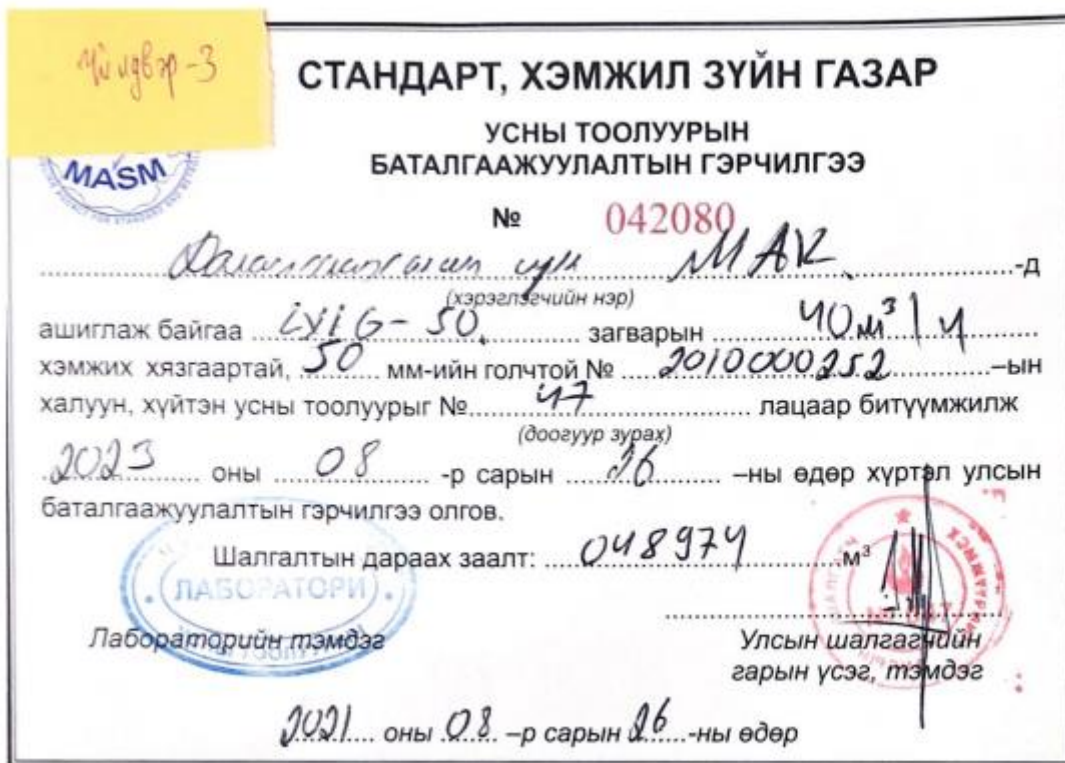 Үйлдвэр-3
СТАНДАРТ, ХЭМЖИЛ ЗҮЙН ГАЗАР
УСНЫ ТООЛУУРЫН
БАТАЛГААЖУУЛАЛТЫН ГЭРЧИЛГЭЭ
MASM
№ 042080
сум МАК -д
(хэрэглэгчийн нэр)
ашиглаж байгаа LXLG-50 загварын 40м³/ч
хэмжих хязгаартай, 50 мм-ийн голчтой № 2010000252 –ын
халуун, хүйтэн усны тоолуурыг № 47 лацаар битүүмжилж
(доогуур зурах)
2023 оны 08 -р сарын 26 –ны өдөр хүртэл улсын
баталгаажуулалтын гэрчилгээ олгов.
Шалгалтын дараах заалт: 048974 м³
ЛАБОРАТОРИ
Лабораторийн тэмдэг
Улсын шалгагчийн
гарын үсэг, тэмдэг
2021 оны 08 –р сарын 26 -ны өдөр